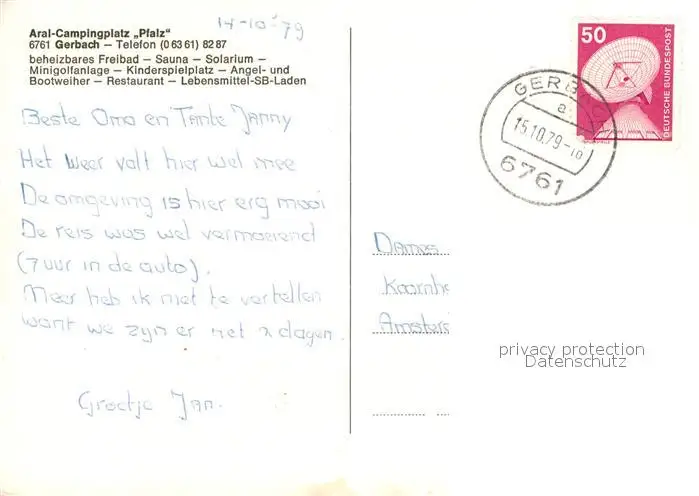 14-10-'79
Aral-Campingplatz „Pfalz"
6761 Gerbach — Telefon (0 63 61) 82 87
beheizbares Freibad — Sauna — Solarium —
Minigolfanlage — Kinderspielplatz — Angel- und
Bootweiher — Restaurant — Lebensmittel-SB-Laden
Beste Oma en Tante Janny
Het weer valt hier wel mee
De omgeving is hier erg mooi
De reis was wel vermoeiend
(7 uur in de auto).
Meer heb ik niet te vertellen
want we zijn er net 2 dagen.
Groetje Jan.
50
DEUTSCHE BUNDESPOST
GERBACH
a
15.10.79-10
6761
Dames
Koornh
Amster
privacy protection
Datenschutz